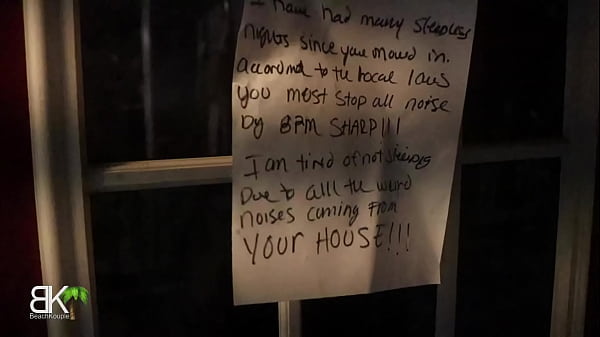 I have had many sleepless
nights since you moved in.
According to the local laws
you must stop all noise
by 8PM SHARP!!!
I am tired of not sleeping
Due to alll the weird
noises coming from
YOUR HOUSE!!!
BK
BeachKouple